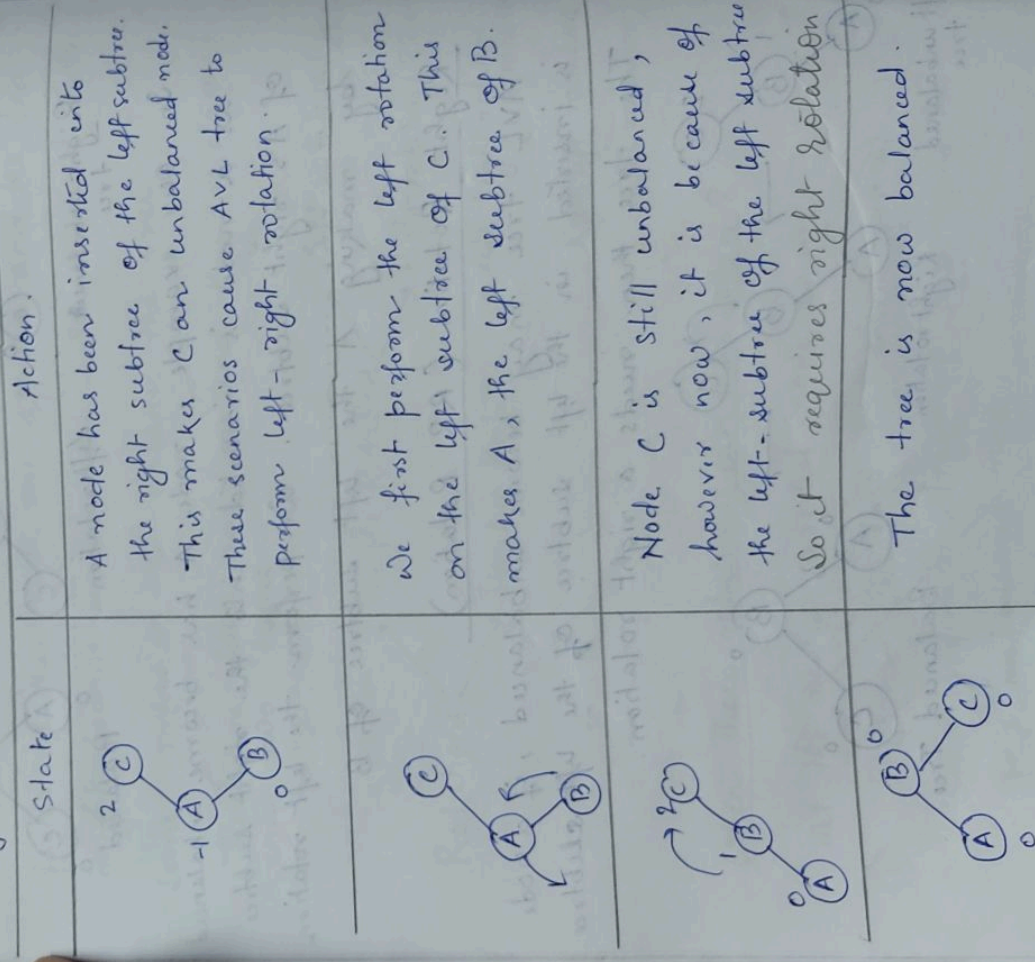 State
Action.
2
C
-1 A
B
0
A node has been inserted into
the right subtree of the left subtree.
This makes C an unbalanced node.
These scenarios cause AVL tree to
perform left-right rotation.
C
A
B
We first perform the left rotation
on the left subtree of C. This
makes A, the left subtree of B.
2 C
1 B
0 A
Node C is still unbalanced,
however now, it is because of
the left-subtree of the left subtree
So it requires right rotation
B 0
A
0
C
0
The tree is now balanced.